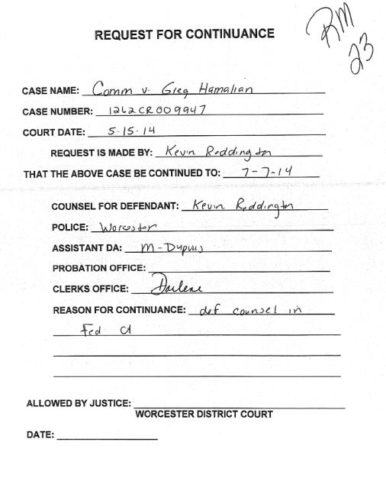 RM
23
REQUEST FOR CONTINUANCE
CASE NAME: Comm v. Greg Hamalian
CASE NUMBER: 1262CR009947
COURT DATE: 5-15-14
REQUEST IS MADE BY: Kevin Reddington
THAT THE ABOVE CASE BE CONTINUED TO: 7-7-14
COUNSEL FOR DEFENDANT: Kevin Reddington
POLICE: Worcester
ASSISTANT DA: M-Dupuis
PROBATION OFFICE:
CLERKS OFFICE: Darlene
REASON FOR CONTINUANCE: def counsel in
Fed Ct
ALLOWED BY JUSTICE:
WORCESTER DISTRICT COURT
DATE: